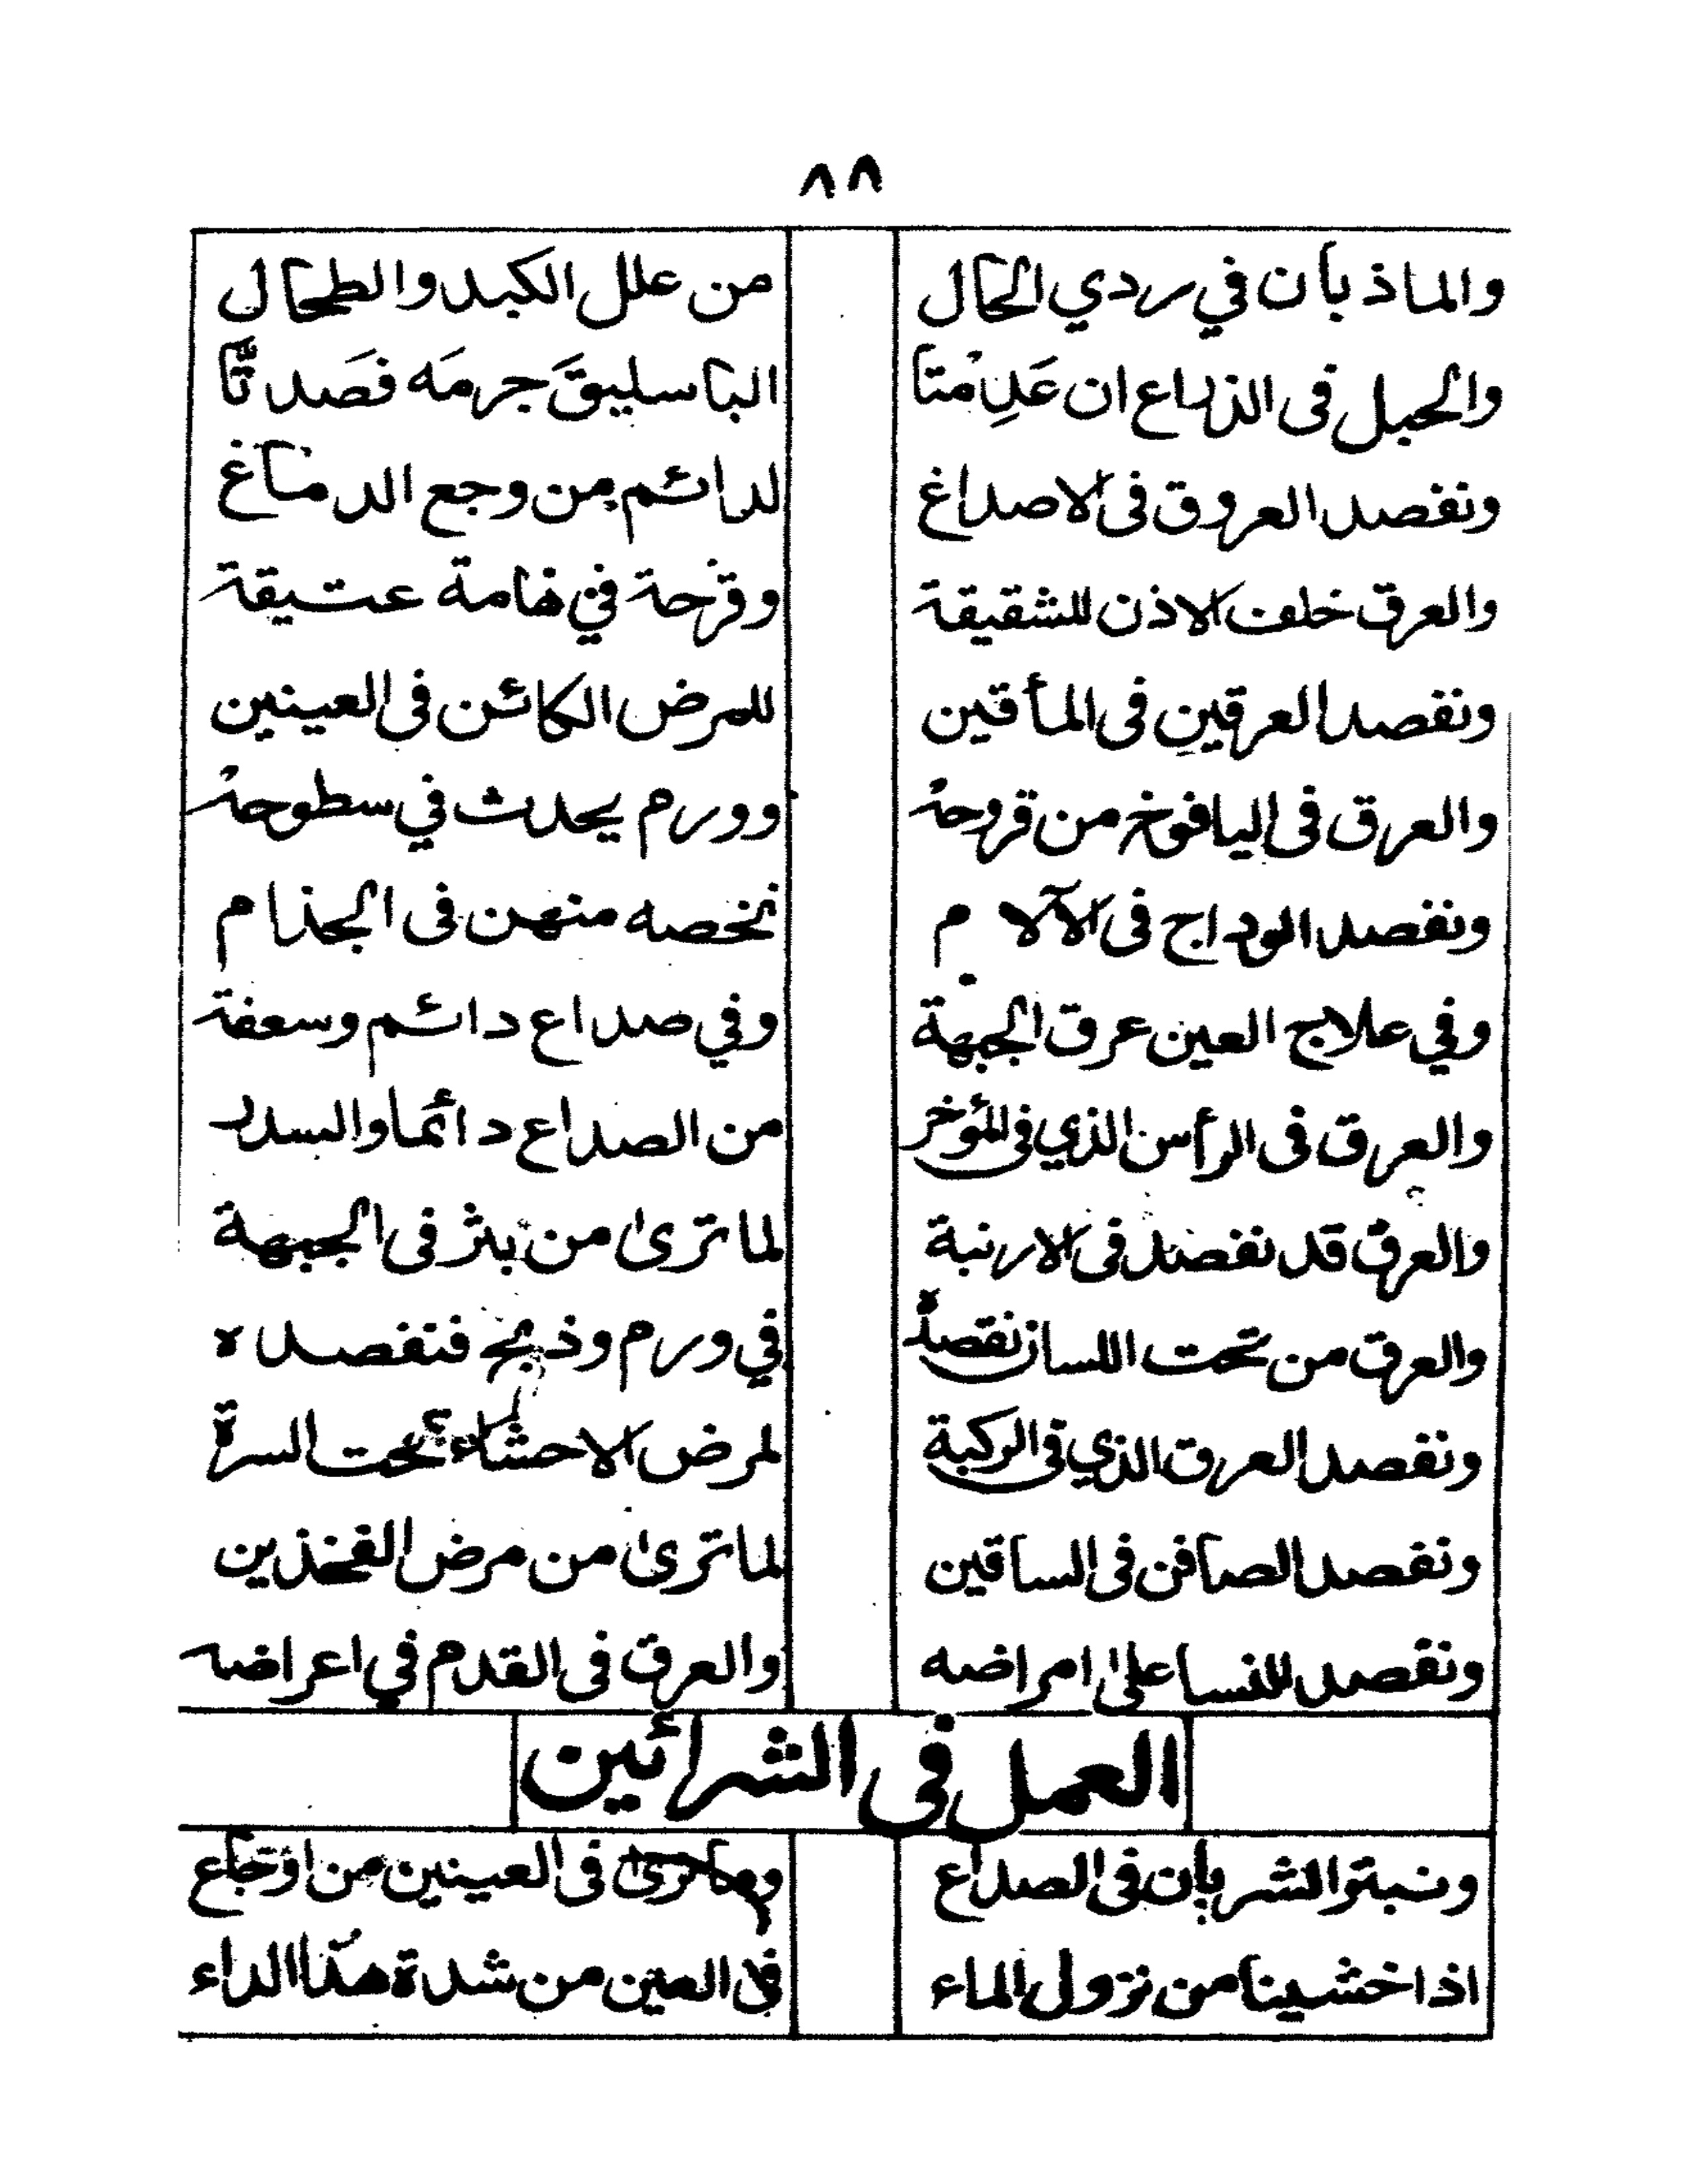 ٨٨
والماذ بان في ردي الحال من علل الكبد والطحال
والحبل فى الذراع ان عَلِمتا الباسليقَ جرمَه فصَدتّا
ونفصد العروق فى الاصداغ لدائم من وجع الدماغ
والعرق خلف الاذن للشقيقة وقرحة في هامة عتيقة
ونفصد العرقين فى المأقين للمرض الكائن فى العينين
والعرق فى اليافوخ من قروحه وورم يحدث في سطوحه
ونفصد الوداج فى الآلام نخصه منهن فى الجذام
وفي علاج العين عرق الجبهة وفي صداع دائم وسعفة
والعرق فى الرأس الذي فى المؤخر من الصداع دائما والسدر
والعرق قد نفصد فى الارنبة لما ترى من بثر فى الجبهة
والعرق من تحت اللسان نفصده في ورم وذبح فنفصده
ونفصد العرق الذي فى الركبة لمرض الاحشاء تحت السرة
ونفصد الصافن فى الساقين لما ترى من مرض الفخذين
ونفصد للنسا على امراضه والعرق فى القدم في اعراضه
العمل فى الشرائين
ونبتر الشربان فى الصداع وما ترى فى العينين من اوجاع
اذا خشينا من نزول الماء فى العين من شدة هذا الداء